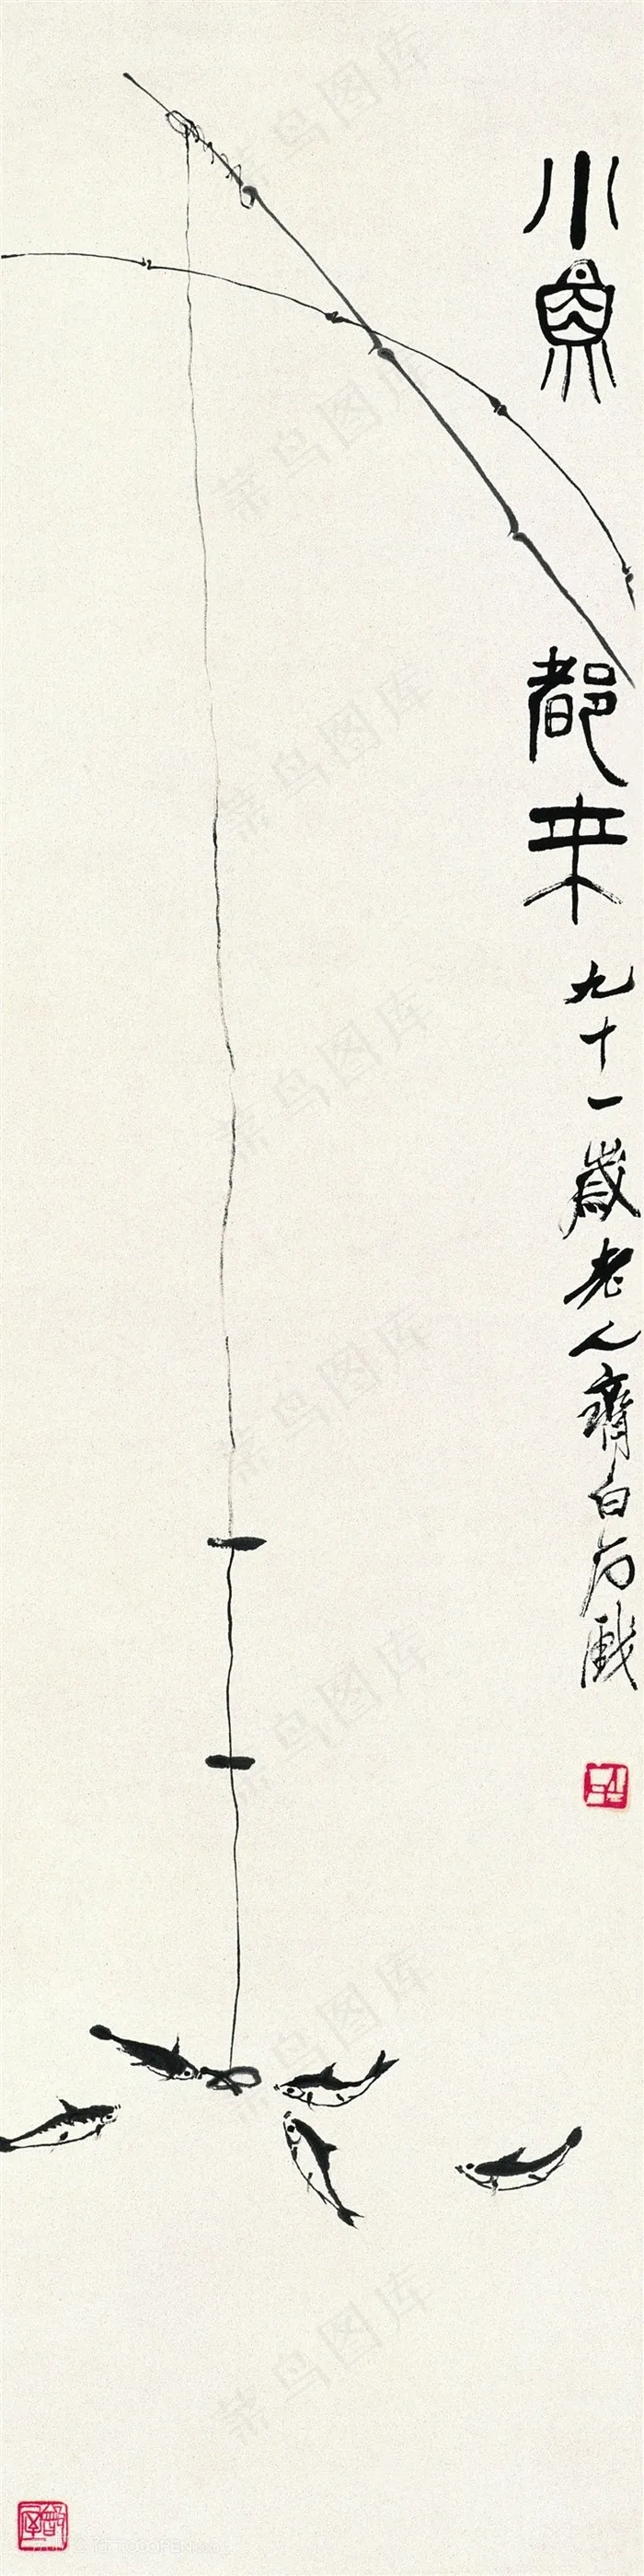 小魚都来九十一歲老人齊白石戲
菜鸟图库
菜鸟图库
菜鸟图库
菜鸟图库
菜鸟图库
菜鸟图库
菜鸟图库
菜鸟图库